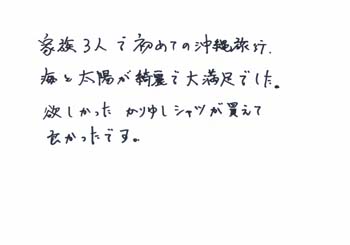 家族3人で初めての沖縄旅行.
海と太陽が綺麗で大満足でした。
欲しかったかりゆしシャツが買えて
良かったです。